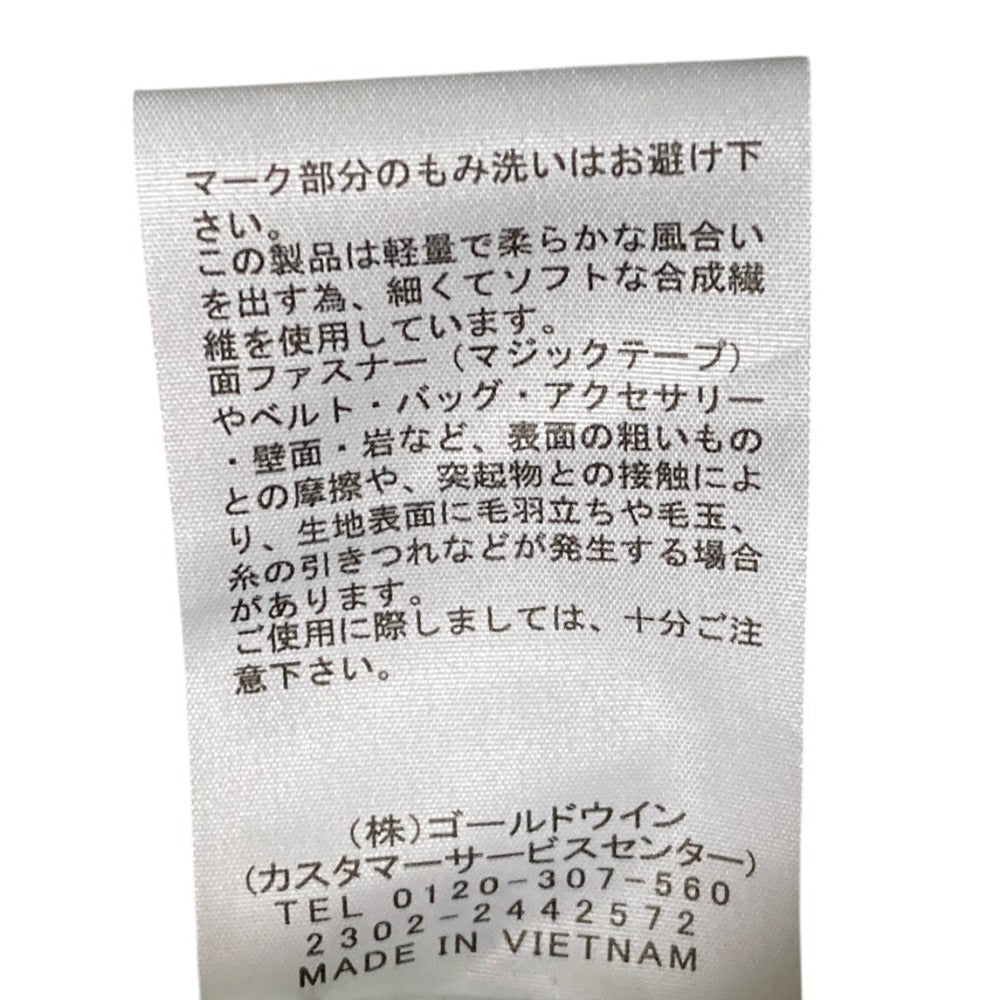 マーク部分のもみ洗いはお避け下
さい。
この製品は軽量で柔らかな風合い
を出す為、細くてソフトな合成繊
維を使用しています。
面ファスナー（マジックテープ）
やベルト・バッグ・アクセサリー
・壁面・岩など、表面の粗いもの
との摩擦や、突起物との接触によ
り、生地表面に毛羽立ちや毛玉、
糸の引きつれなどが発生する場合
があります。
ご使用に際しましては、十分ご注
意下さい。
(株)ゴールドウイン
(カスタマーサービスセンター)
TEL 0120-307-560
2302-2442572
MADE IN VIETNAM